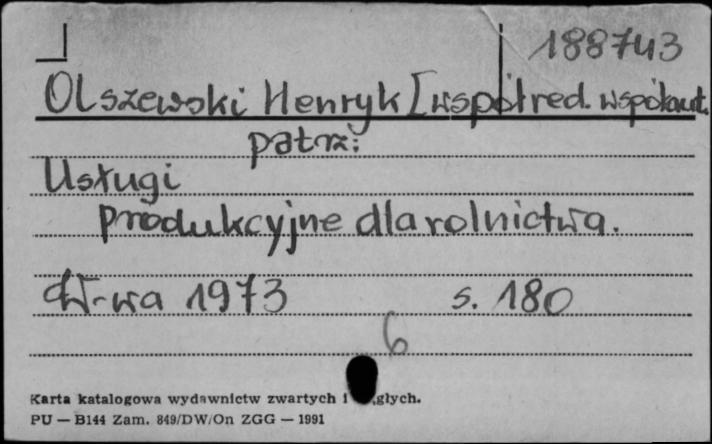 188743
Olszewski Henryk [współred. współaut.
patrz:
Usługi
produkcyjne dla rolnictwa.
W-wa 1973 s. 180
6
Karta katalogowa wydawnictw zwartych i głych.
PU — B144 Zam. 849/DW/On ZGG — 1991